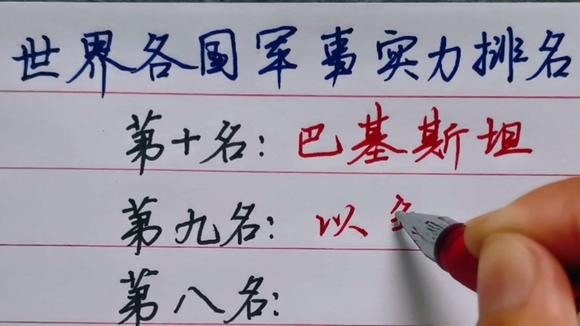 世界各国军事实力排名
第十名：巴基斯坦
第九名：以
第八名：